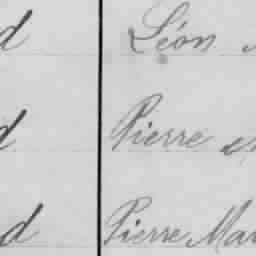 d Léon
d Pierre
d Pierre Mar